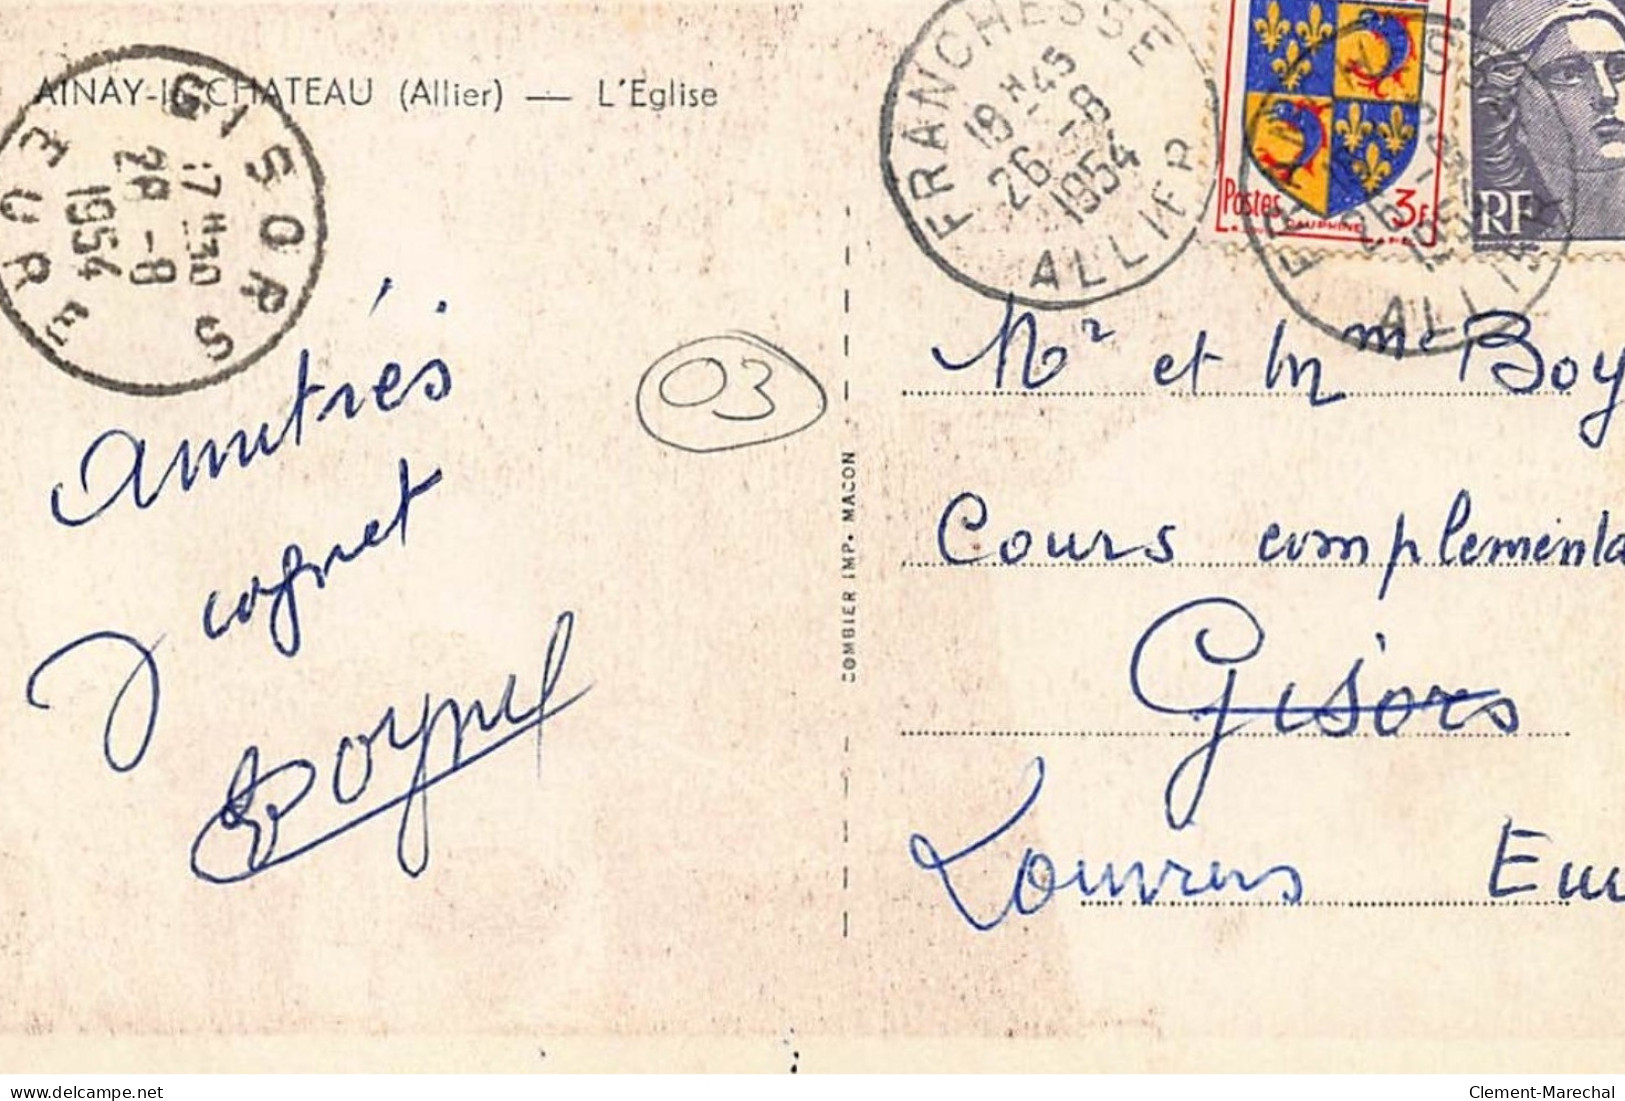 AINAY-le-CHATEAU (Allier) — L'Eglise
GISORS
17 H 30
28 - 8
1954
EURE
FRANCHESSE
18 H 45
26 - 8
1954
ALLIER
Postes
DAUPHINE
3F
RF
ALLIER
03
amitiés
cognet
COMBIER IMP. MACON
Mr et Mme Boy
Cours complementa
Gisors
Louviers Eu
delcampe.net
Clement-Marechal